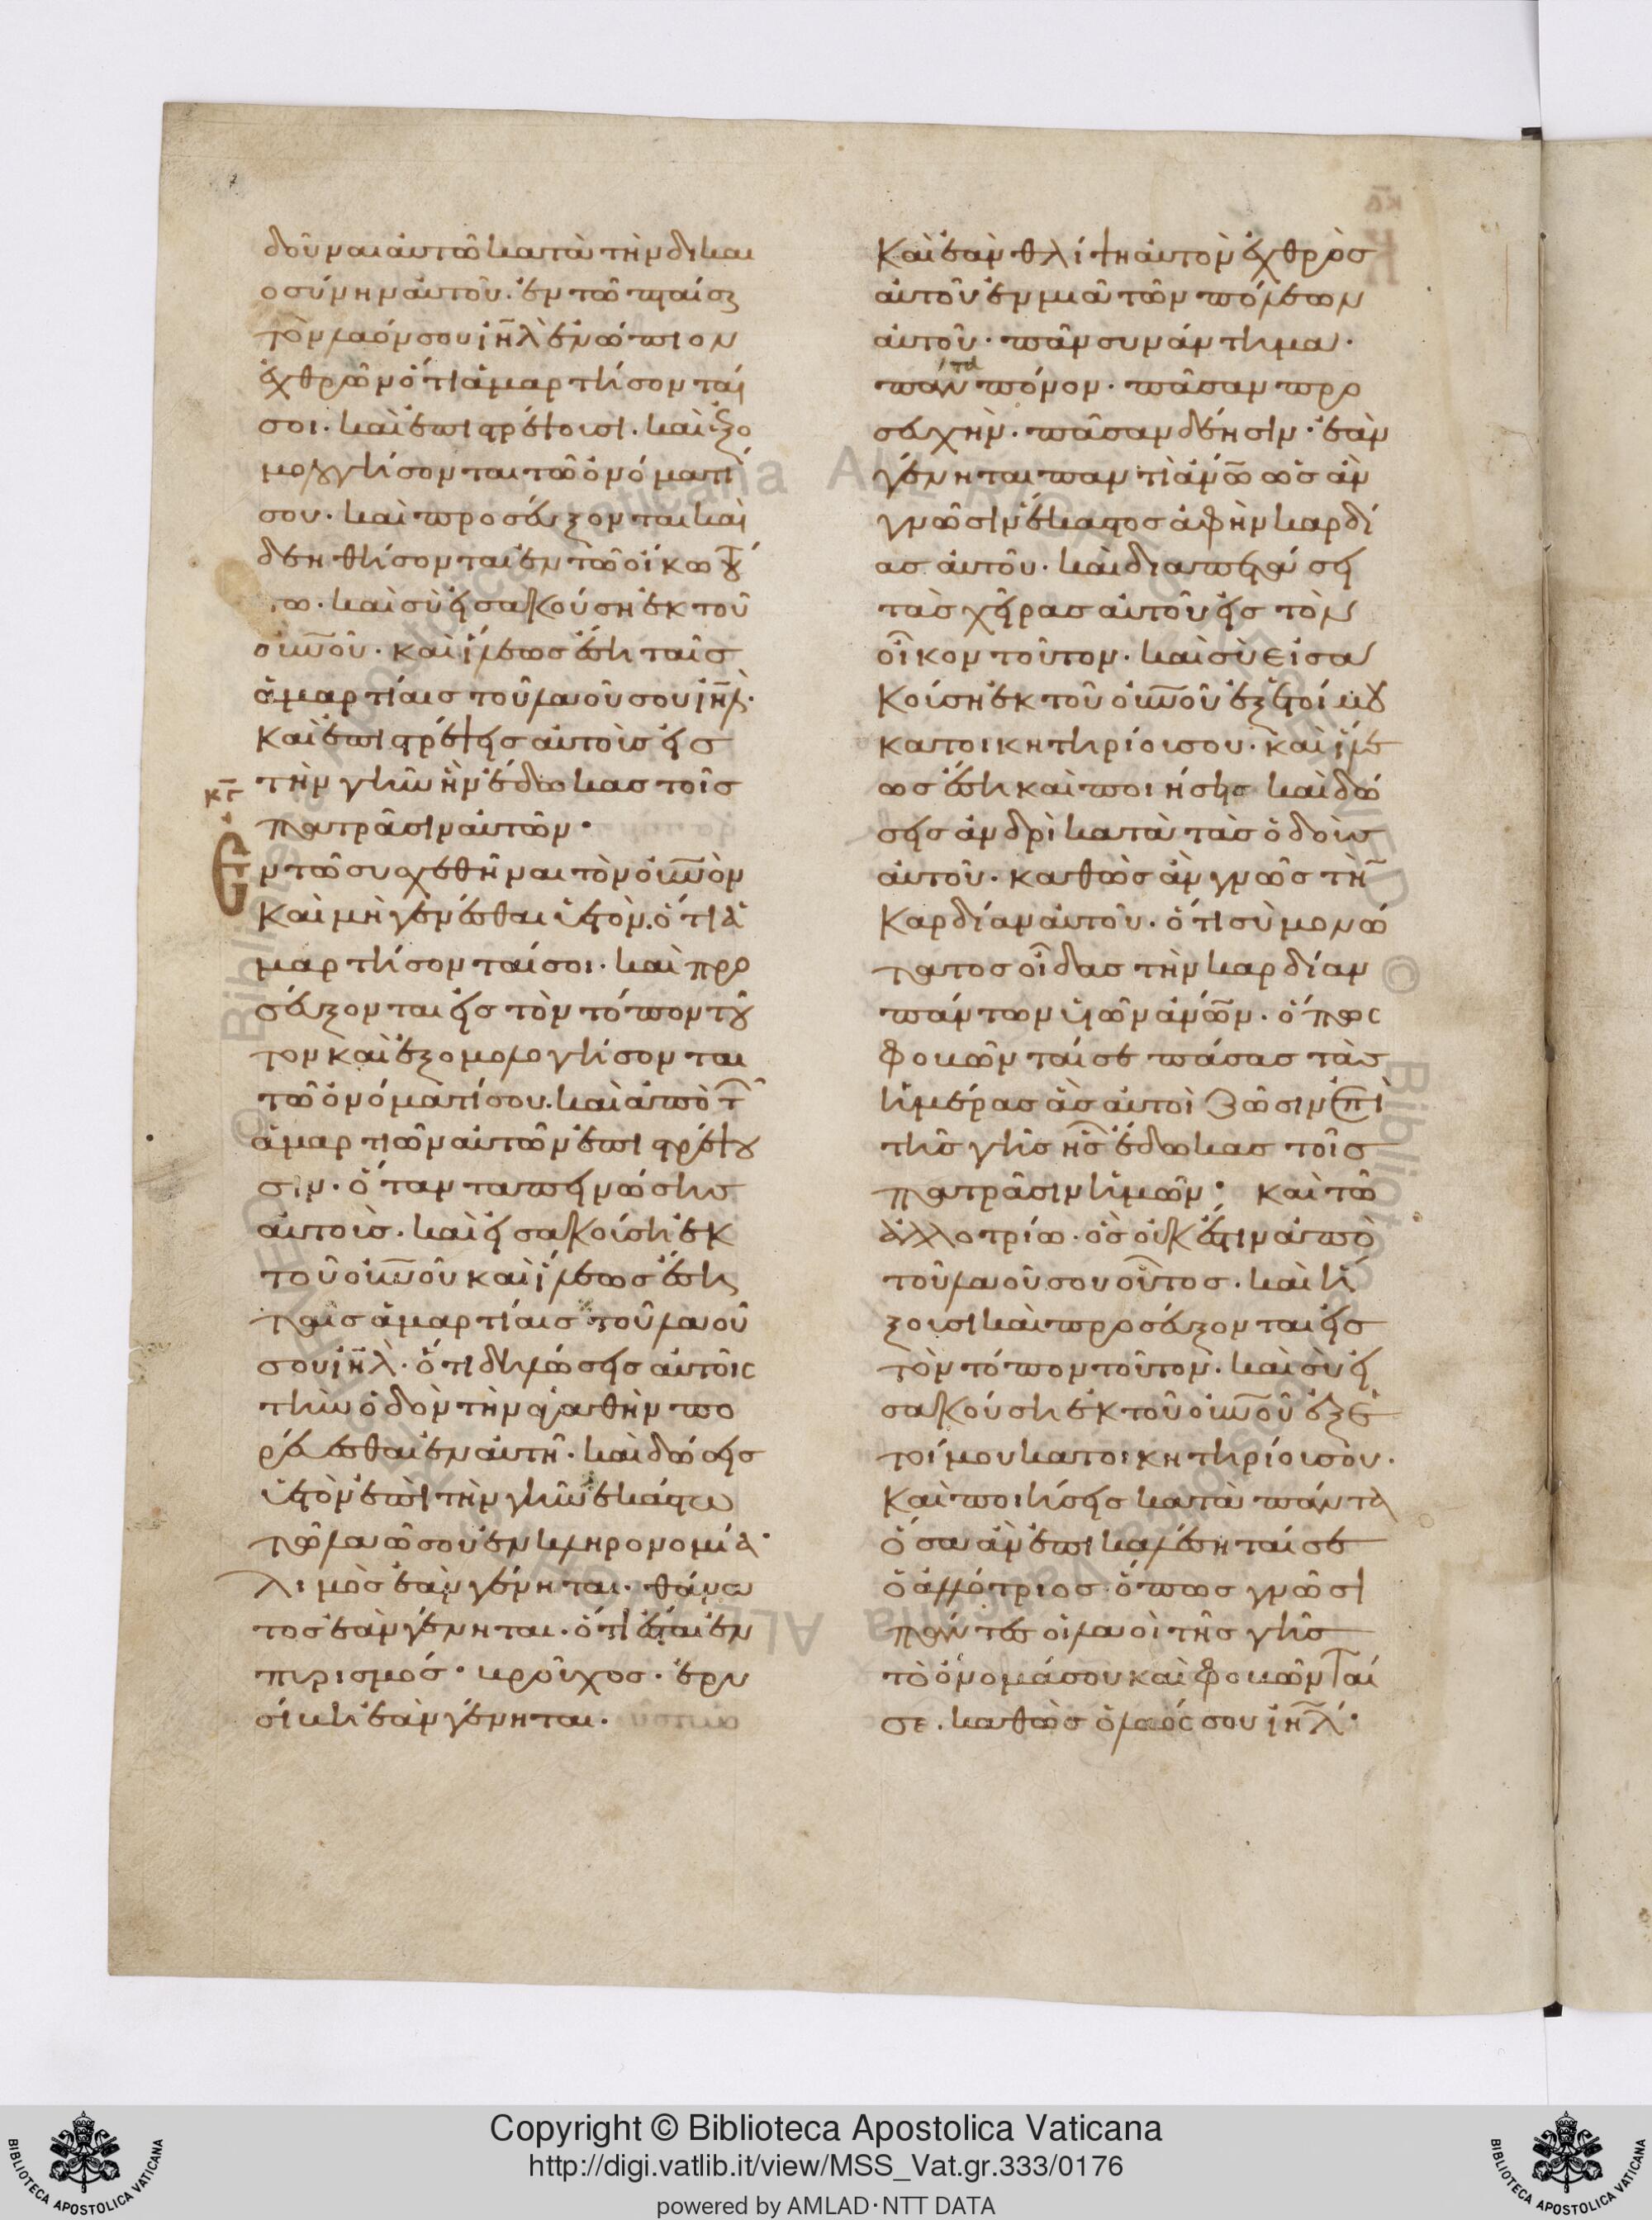 δοῦναι αὐτῶ κατὰ τὴν δικαι
οσύνην αὐτοῦ. ἐν τῶ πταίσαι
τὸν λαόν σου ιηλ ἐνώπιον
ἐχθρῶν ὅτι ἁμαρτήσονταί
σοι. καὶ ἐπιστρέψουσι. καὶ ἐξο
μολογήσονται τῶ ὀνόματί
σου. καὶ προσεύξονται καὶ
δεηθήσονται ἐν τῶ οἴκω τού
τω. καὶ σὺ εἰσακούση ἐκ τοῦ
οὐνοῦ. καὶ ἵλεως ἔση ταῖς
ἁμαρτίαις τοῦ λαοῦ σου ιηλ.
Καὶ ἐπιστρέψεις αὐτοὺς εἰς
τὴν γῆν ἣν ἔδωκας τοῖς
πατράσιν αὐτῶν.
κγ
Ἐν τῶ συσχεθῆναι τὸν οὐνὸν
καὶ μὴ γενέσθαι ὑετὸν. ὅτι ἁ
μαρτήσονταί σοι. καὶ προ
σεύξονται εἰς τὸν τόπον τοῦ
τον καὶ ἐξομολογήσονται
τῶ ὀνόματί σου. καὶ ἀπὸ τῶν
ἁμαρτιῶν αὐτῶν ἐπιστρέψου
σιν. ὅταν ταπεινώσης
αὐτοὺς. καὶ εἰσακούση ἐκ
τοῦ οὐνοῦ καὶ ἵλεως ἔση
ταῖς ἁμαρτίαις τοῦ λαοῦ
σου ιηλ. ὅτι δηλώσεις αὐτοῖς
τὴν ὁδὸν τὴν ἀγαθὴν πο
ρεύεσθαι ἐν αὐτῆ. καὶ δώσεις
ὑετὸν ἐπὶ τὴν γῆν ἣν ἔδωκας τω
τῶ λαῶ σου ἐν κληρονομία.
λιμὸς ἐὰν γένηται. θάνα
τος ἐὰν γένηται. ὅτι ἔσται ἐν
πυρισμός. βροῦχος. ἐρυ
σίβη ἐὰν γένηται.
Καὶ ἐὰν θλίψη αὐτὸν ἐχθρὸς
αὐτοῦ ἐν μιᾶ τῶν πόλεων
αὐτοῦ. πᾶν συνάντημα.
πάντα πόνον. πᾶσαν προ
σευχὴν. πᾶσαν δέησιν. ἐὰν
γένηται παντὶ ἀνῶ ὡς ἂν
γνῶσιν ἕκαστος ἁφὴν καρδί
ας αὐτοῦ. καὶ διαπετάσει
τὰς χεῖρας αὐτοῦ εἰς τὸν
οἶκον τοῦτον. καὶ σὺ εἰσα
κούση ἐκ τοῦ οὐνοῦ ἐξ ἑτοίμου
κατοικητηρίου σου. καὶ ἵλε
ως ἔση καὶ ποιήσης καὶ δώ
σεις ἀνδρὶ κατὰ τὰς ὁδοὺς
αὐτοῦ. καθὼς ἂν γνῶς τὴν
καρδίαν αὐτοῦ. ὅτι σὺ μονώ
τατος οἶδας τὴν καρδίαν
πάντων υἱῶν ἀνῶν. ὅπως
φοβῶνταί σε πάσας τὰς
ἡμέρας ἃς αὐτοὶ ζῶσιν ἐπὶ
τῆς γῆς ἧς ἔδωκας τοῖς
πατράσιν ἡμῶν. καὶ τῶ
ἀλλοτρίω. ὃς οὐκ ἔστιν ἀπὸ
τοῦ λαοῦ σου οὗτος. καὶ ἥ
ξουσι καὶ προσεύξονται εἰς
τὸν τόπον τοῦτον. καὶ σὺ εἰ
σακούση ἐκ τοῦ οὐνοῦ ἐξ ἑ
τοίμου κατοικητηρίου σου.
Καὶ ποιήσεις κατὰ πάντα
ὅσα ἂν ἐπικαλέσηταί σε
ὁ ἀλλότριος. ὅπως γνῶσι
πάντες οἱ λαοὶ τῆς γῆς
τὸ ὄνομά σου καὶ φοβῶνταί
σε. καθὼς ὁ λαός σου ιηλ.
Copyright © Biblioteca Apostolica Vaticana
http://digi.vatlib.it/view/MSS_Vat.gr.333/0176
powered by AMLAD·NTT DATA
BIBLIOTECA APOSTOLICA VATICANA
BIBLIOTECA APOSTOLICA VATICANA